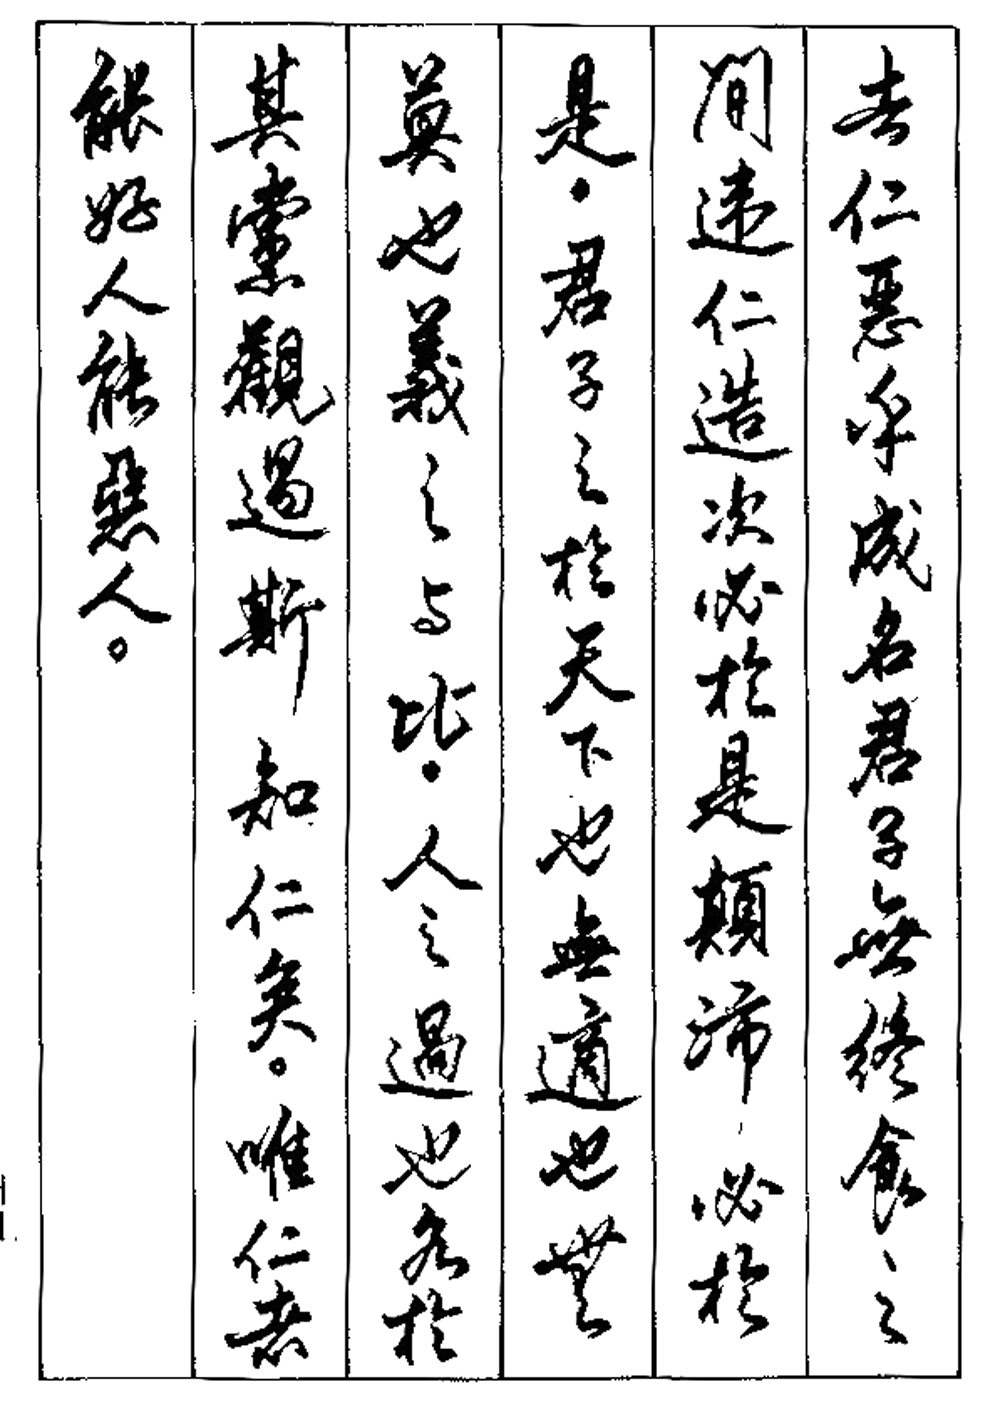 去仁惡乎成名君子無終食之
間違仁造次必於是顛沛必於
是。君子之於天下也無適也無
莫也義之与比。人之過也各於
其黨觀過斯知仁矣。唯仁者
能好人能惡人。